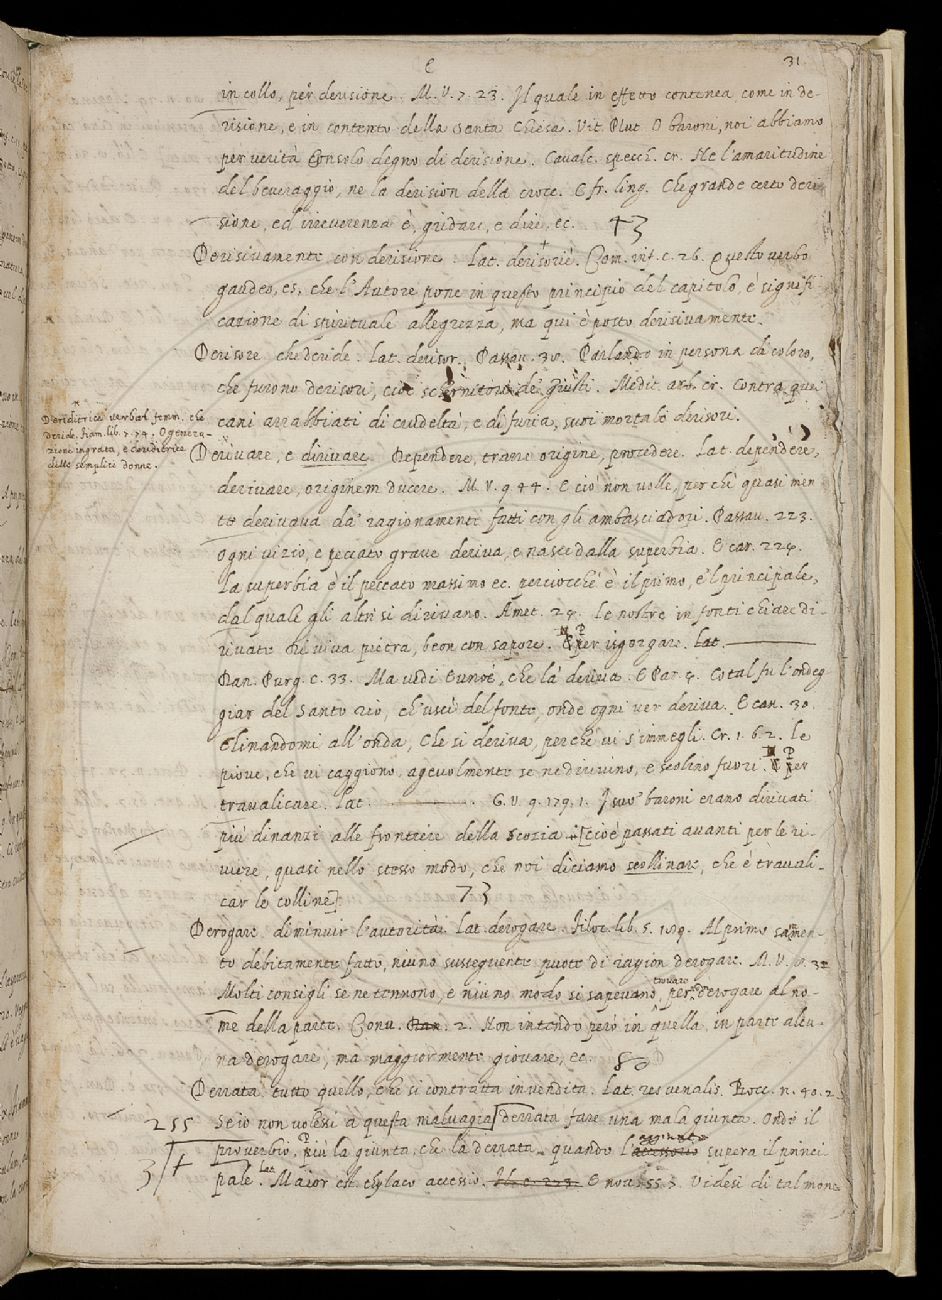 E
31
in collo, per derisione. M. V. 7. 23. Il quale in effetto contenea, come in de-
risione, e in contento della santa Chiesa. Vit. Plut. O baroni, noi abbiamo
per verità Consolo degno di derisione. Cavalc. specch. cr. Ne l'amaritudine
del beveraggio, ne la derision della croce. E fr. ling. Che grande certo deri-
sione, ed irreverenza è, gridare, e dire, ec. 43
Derisivamente. con derisione. Lat. derisoriè. Com. inf. c. 26. Questo verbo
gaudeo, es, che l'Autore pone in questo principio del capitolo, è signifi-
cazione di spirituale allegrezza, ma qui è posto derisivamente.
Derisore. che deride. lat. derisor. Passav. 30. Parlando in persona di coloro,
che furono derisori, cioè schernitori de giusti. Medit. arb. cr. Contra quei
cani arrabbiati di crudeltà, e di furia, suoi mortali derisori.
Deriditrice verbal femm. che
deride. fiam. lib. 7. 74. O genera-
zione ingrata, e deriditrice
delle semplici donne.
Derivare, e dirivare. Dependere, trarre origine, procedere. Lat. dependère,
derivare, originem ducere. M. V. 9. 44. E ciò non volle, perchè quasi men-
te derivava da' ragionamenti fatti con gli ambasciadori. Passav. 223.
ogni vizio, e peccato grave deriva, e nasce dalla superbia. E car. 224.
la superbia è il peccato massimo ec. perciocchè è il primo, e'l principale,
dal quale gli altri si dirivano. Amet. 24. le nostre in fonti chiare di-
rivate di viva pietra, beon con sapore. ¶ per isgorgare. lat.
Dan. Purg. c. 33. Ma vedi Eunoè, che là deriva. E Par. 4. Cotal fu l'ondeg-
giar del santo rio, ch'uscì del fonte, onde ogni ver deriva. E can. 30.
Chinandomi all'onda, Che si deriva, perchè vi s'immegli. Cr. 1. 6. 2. le
piove, che vi caggiono, agevolmente se ne dirivino, e scolino fuori. ¶ per
travalicare. lat. G. V. 9. 179. 1. I suo' baroni erano dirivati
più dinanzi alle frontiere della Scozia [cioè passati avanti per le ri-
viere, quasi nello stesso modo, che noi diciamo scollinare, che è travali-
car le colline]. 73
Derogare. diminuir l'autorità. Lat. derogare. Filoc. lib. 5. 189. Al primo saramen-
to debitamente fatto, niuno susseguente puote di ragion derogare. M. V. 10. 32
Molti consigli se ne tennono, e niuno modo si sapevano trovare, per derogare al no-
me della parte. Conv. Dan. 2. Non intendo però in quella, in parte alcu-
na derogare, ma maggiormente giovare, ec. 80
Derrata. tutto quello, che si contratta in vendita. Lat. res venalis. Bocc. n. 40. 2.
255 Se io non volessi a questa malvagia derrata fare una mala giunta. Onde il
3/+ proverbio, più la giunta, che la derrata. quando l'aggiunto supera il princi-
pale. Lat. Maior est thylaco accessio. E nov. 55. 7. Videsi di tal mone-